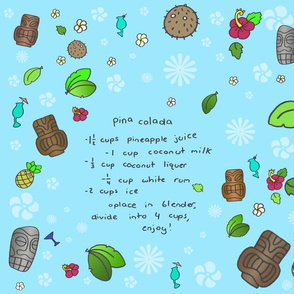 pina colada
-1½ cups pineapple juice
-1 cup coconut milk
-⅓ cup coconut liquer
-¼ cup white rum
-2 cups ice
place in blender,
divide into 4 cups,
enjoy!